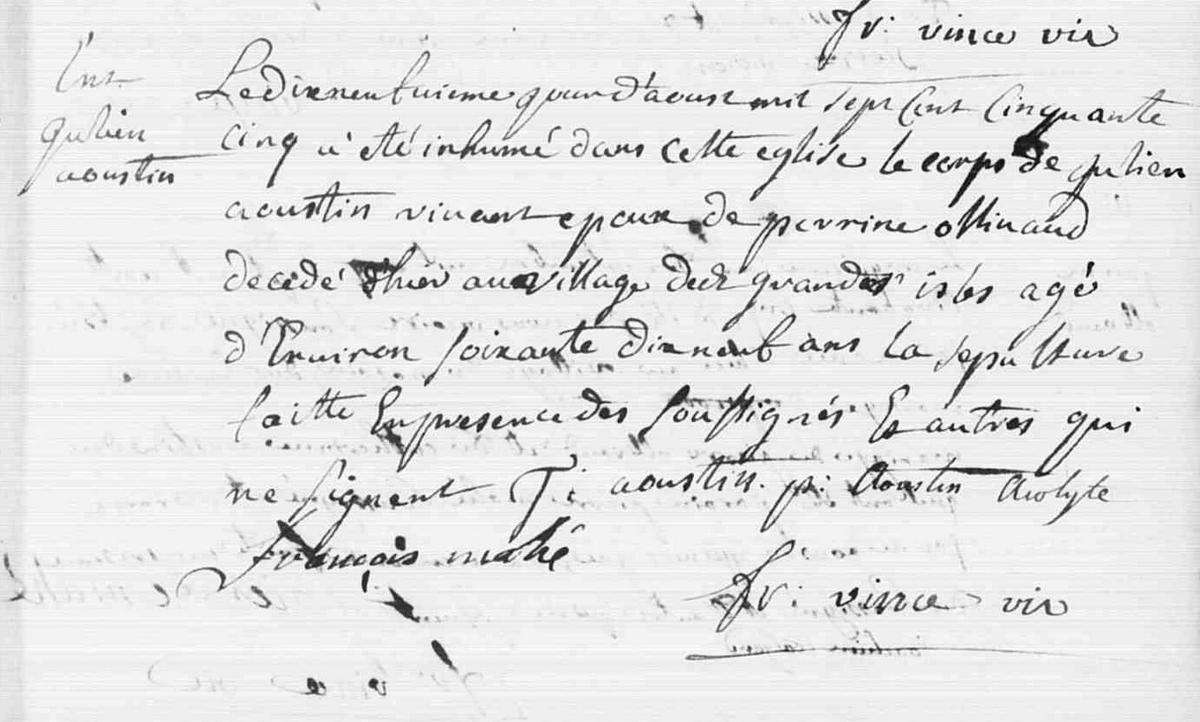 fr: vince vic
Ent
Julien
aoustin
Le dixneufvieme jour d'aoust mil sept Cent Cinquante
cinq à été inhumé dans cette eglise le corps de Julien
aoustin vivant epoux de perrine ollivaud
decedé d'hier au village des grandes isles agé
d'Environ soixante dixneuf ans la sepulture
faitte En presence des soussignés Et autres qui
ne signent J: aoustin. p: Aoustin Acolyte
françois mahé
fr: vince vic